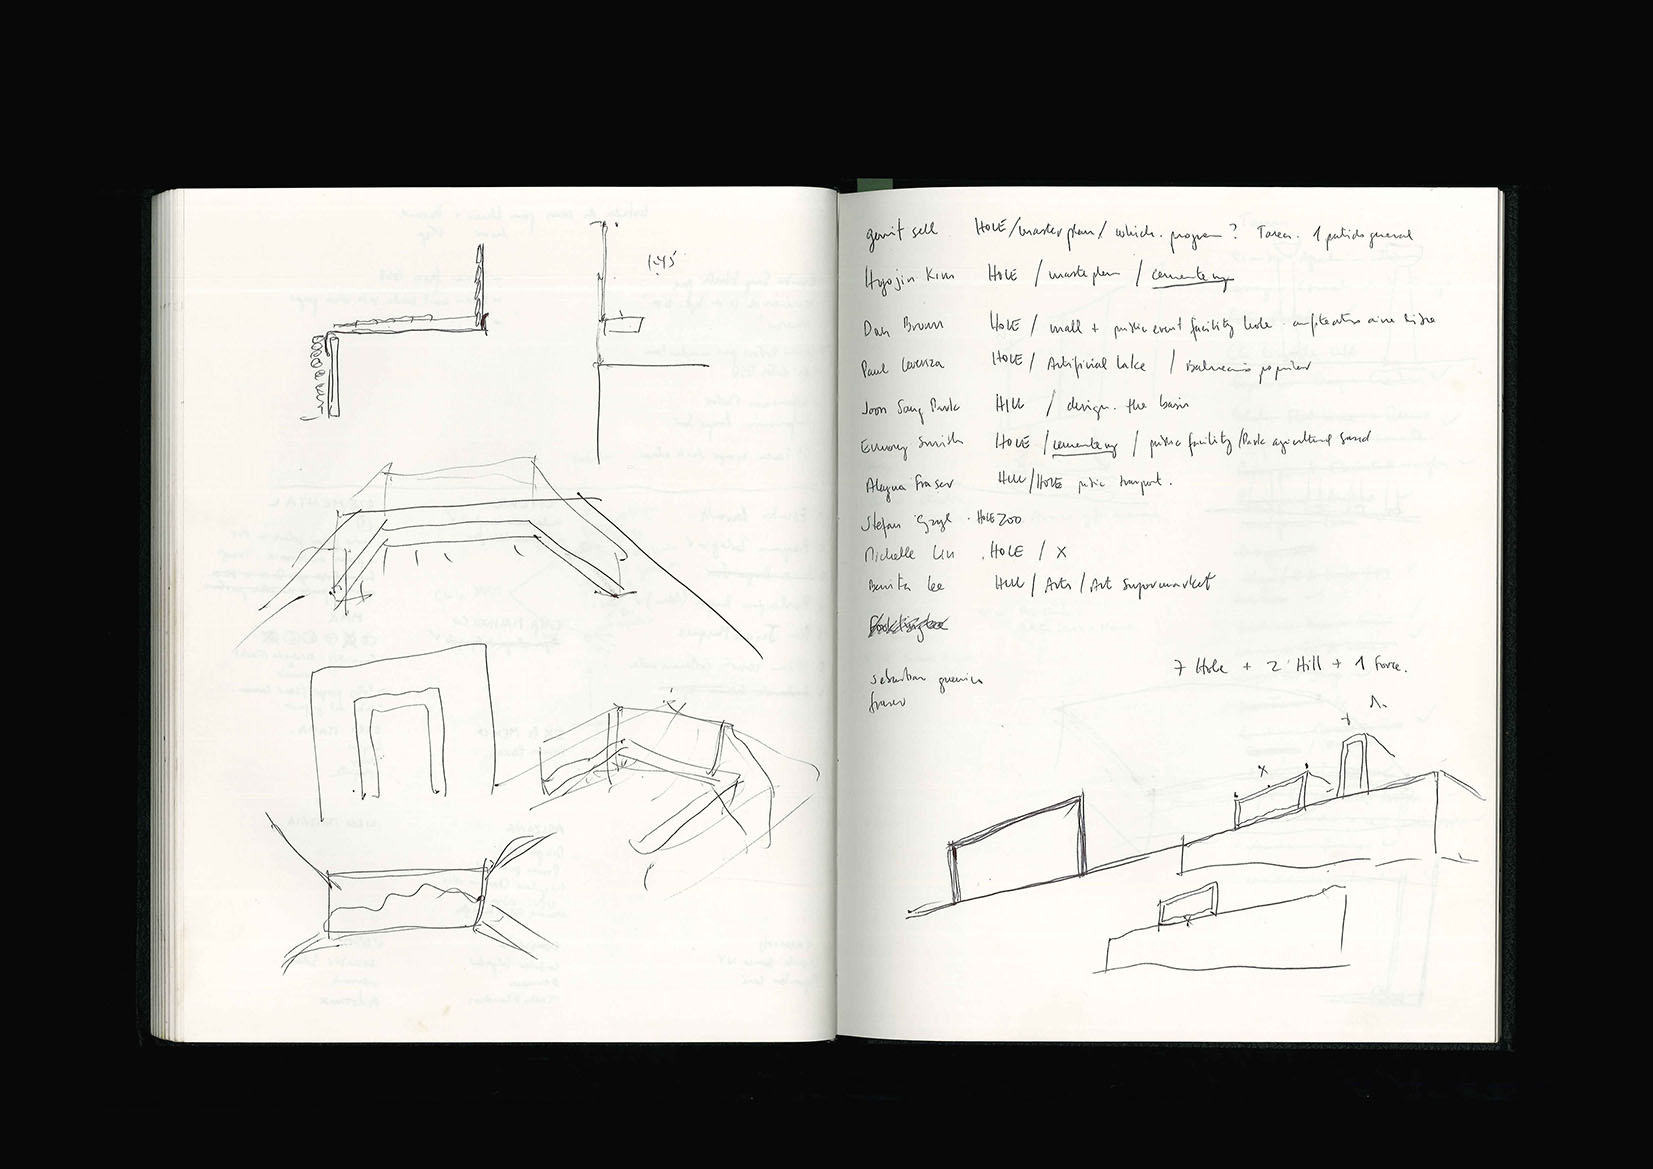 1:45
gerrit sell HOLE/master plan/ which. program? Tarea. 1 partido general
Hyojin Kim HOLE / masterplan / cementery
Dan Brown HOLE / mall + public event facility hole. anfiteatro aire libre
Paul HOLE / Artificial Lake / Balneario popular
Joon Sang Park Hill / design. the basin
Emory Smith HOLE / cementery / public facility/Park agricultural
Alayna Fraser Hill/HOLE public transport.
Stefan . HOLE ZOO
Michelle Lin . HOLE / X
Lee Hill / Arts / Art Supermarket
sebastian
7 Hole + 2 Hill + 1 Force.
+ 1.
x